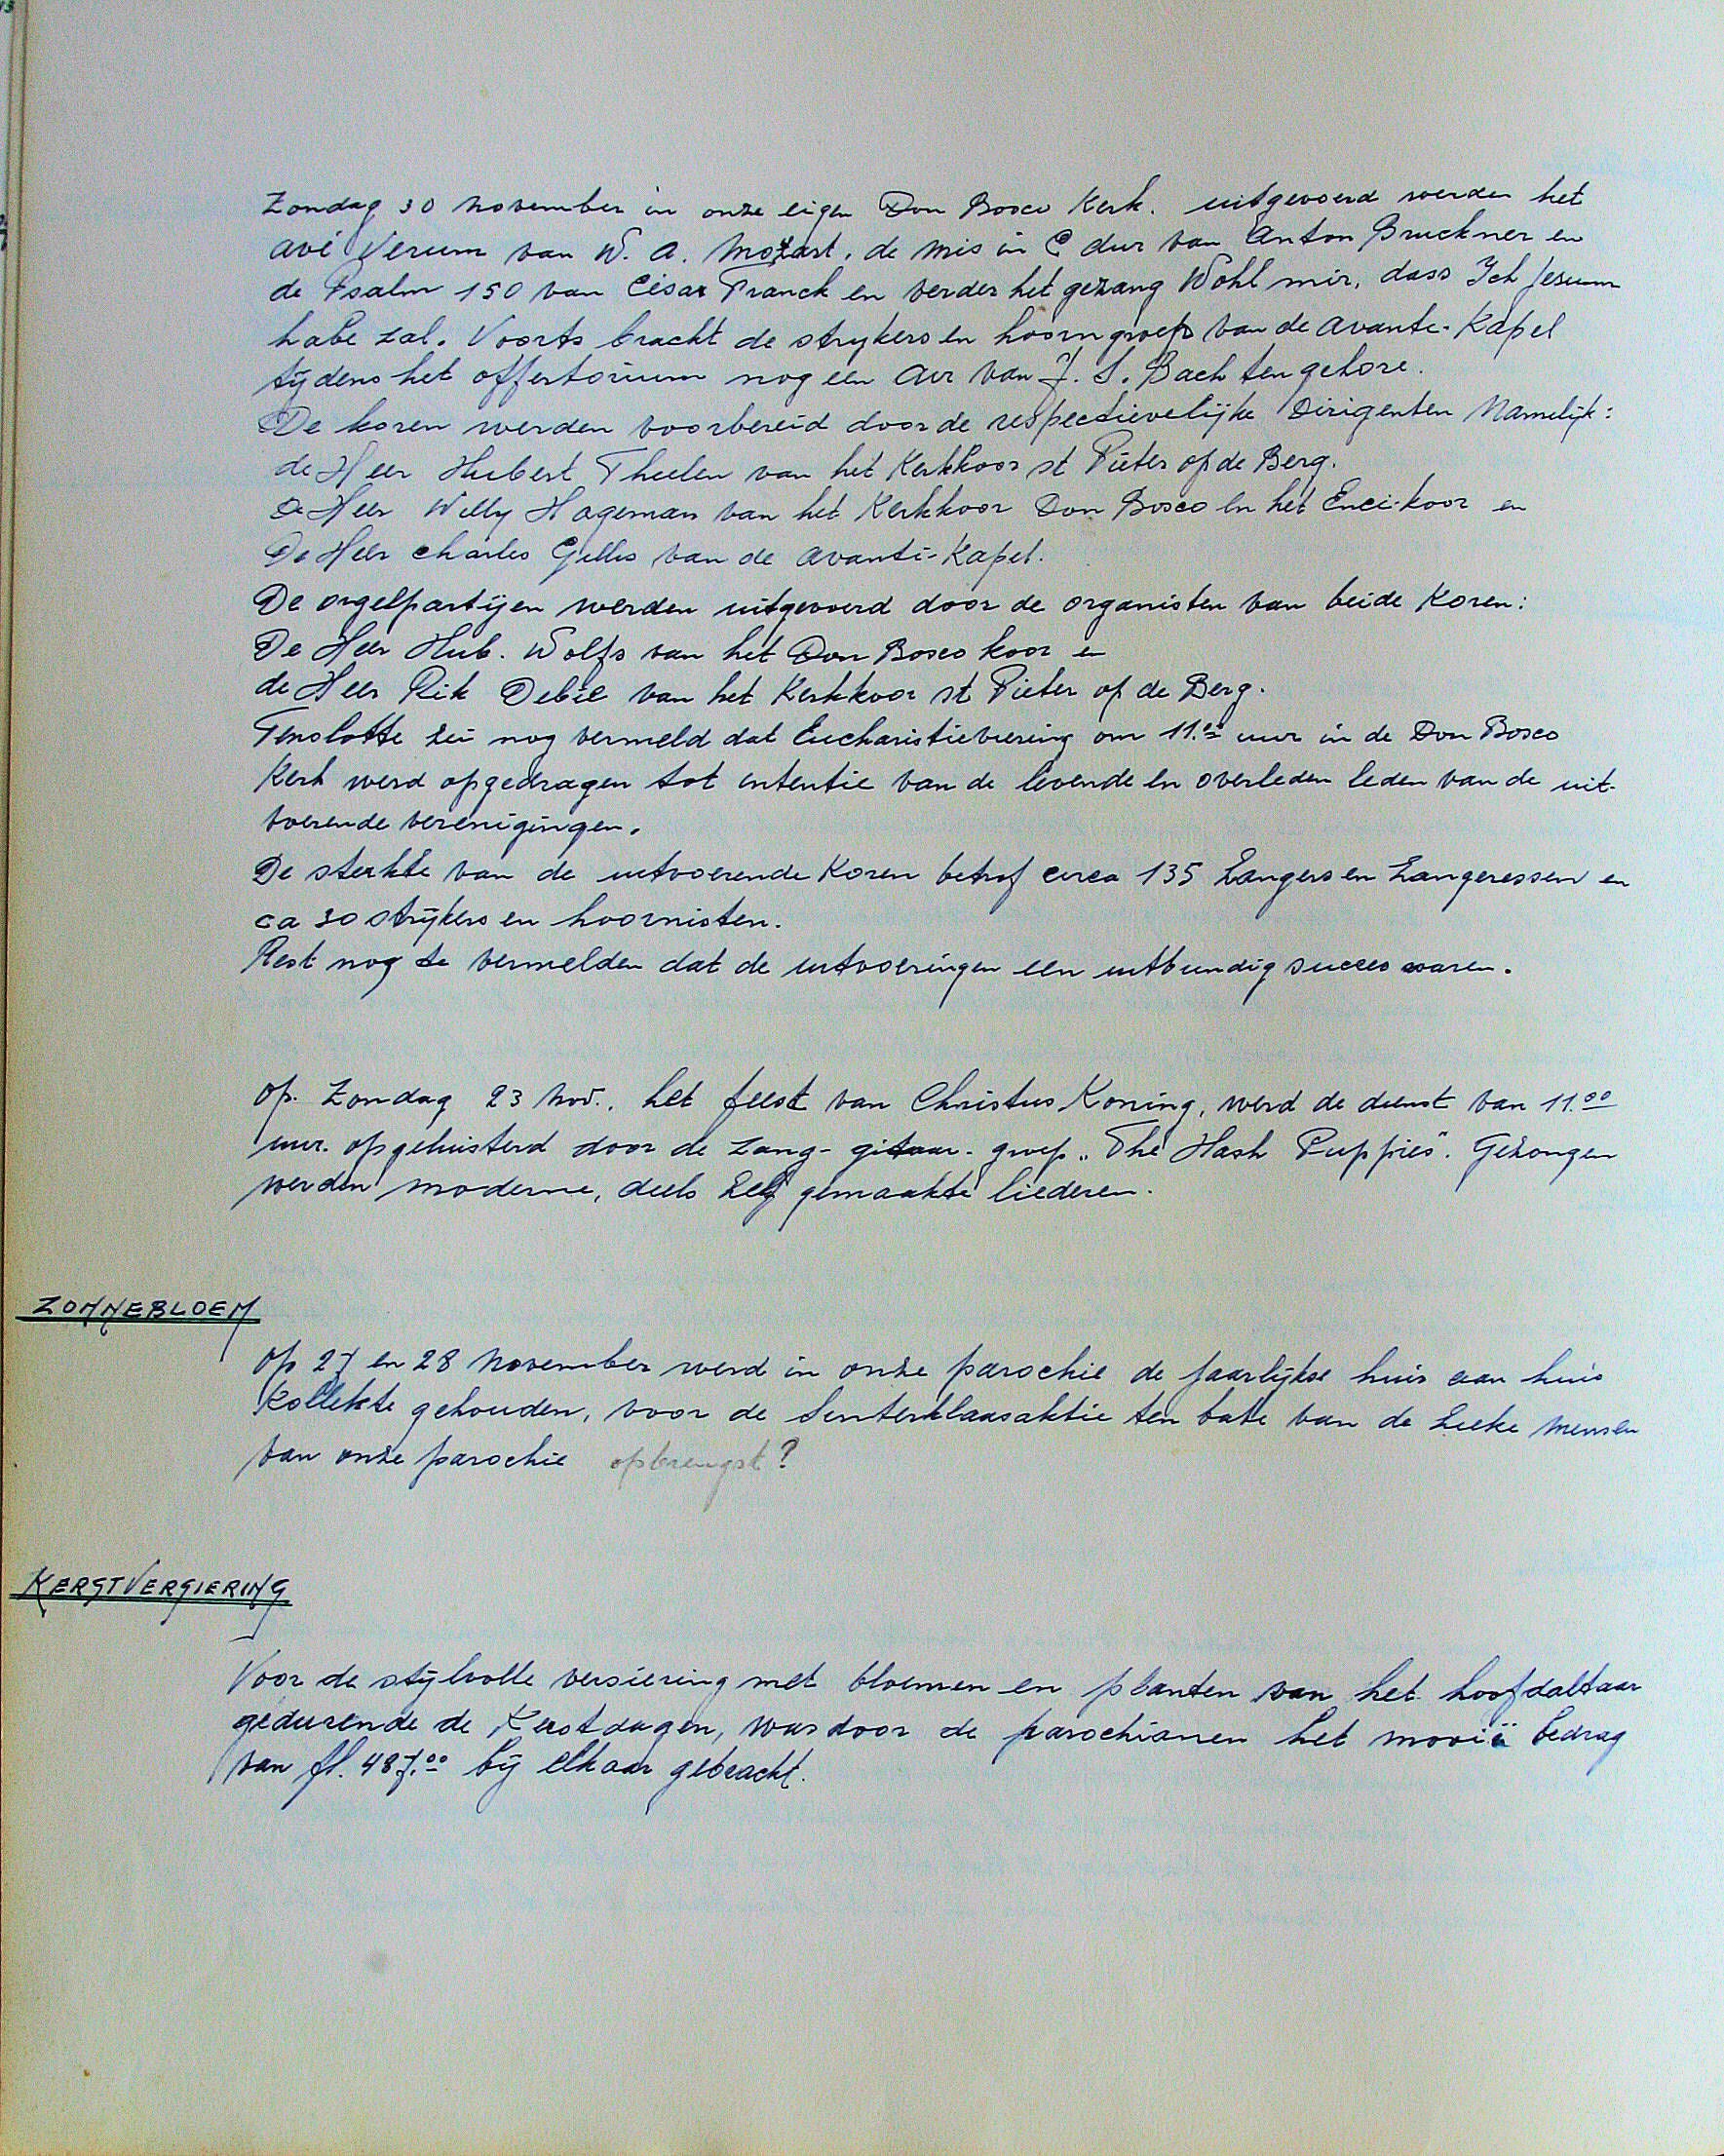 Zondag 30 november in onze eigen Don Bosco Kerk. uitgevoerd werden het
avé Verum van W. A. Mozart, de mis in C dur van Anton Bruckner en
de Psalm 150 van César Franck en verder het gezang Wohl mir, dass Ich Jesum
habe zal. Voorts bracht de strykers en hoorngroep van de avanti-Kapel
tijdens het offertorium nog een air van J. S. Bach ten gehore.
De koren werden voorbereid door de respectievelijke Dirigenten Namelijk:
de Heer Hubert Theelen van het Kerkkoor st Pieter op de Berg.
De Heer Willy Hageman van het Kerkkoor Don Bosco en het Enci-koor en
De Heer Charles Gilles van de avanti-Kapel.
De orgelpartijen werden uitgevoerd door de organisten van beide Koren:
De Heer Hub. Wolfs van het Don Bosco koor en
de Heer Rik Debie van het Kerkkoor st Pieter op de Berg.
Tenslotte zei nog vermeld dat Eucharistieviering om 11.00 uur in de Don Bosco
Kerk werd opgedragen tot intentie van de levende en overleden leden van de uit-
voerende verenigingen.
De sterkte van de uitvoerende Koren betrof circa 135 Zangers en Zangeressen en
ca 30 strijkers en hoornisten.
Rest nog te vermelden dat de uitvoeringen een uitbundig succes waren.
Op. Zondag 23 Nov., het feest van Christus Koning, werd de dienst van 11.00
uur. opgeluisterd door de Zang- gitaar- groep „The Hash Puppies". Gezongen
werden moderne, deels zelf gemaakte liederen.
ZONNEBLOEM
Op 27 en 28 November werd in onze parochie de jaarlijkse huis aan huis
Kollekte gehouden, voor de Sinterklaasaktie ten bate van de zieke mensen
van onze parochie opbrengst?
KERSTVERSIERING
Voor de stijlvolle versiering met bloemen en planten van het hoofdaltaar
gedurende de Kerstdagen, was door de parochianen het mooië bedrag
van fl. 487.00 bij elkaar gebracht.